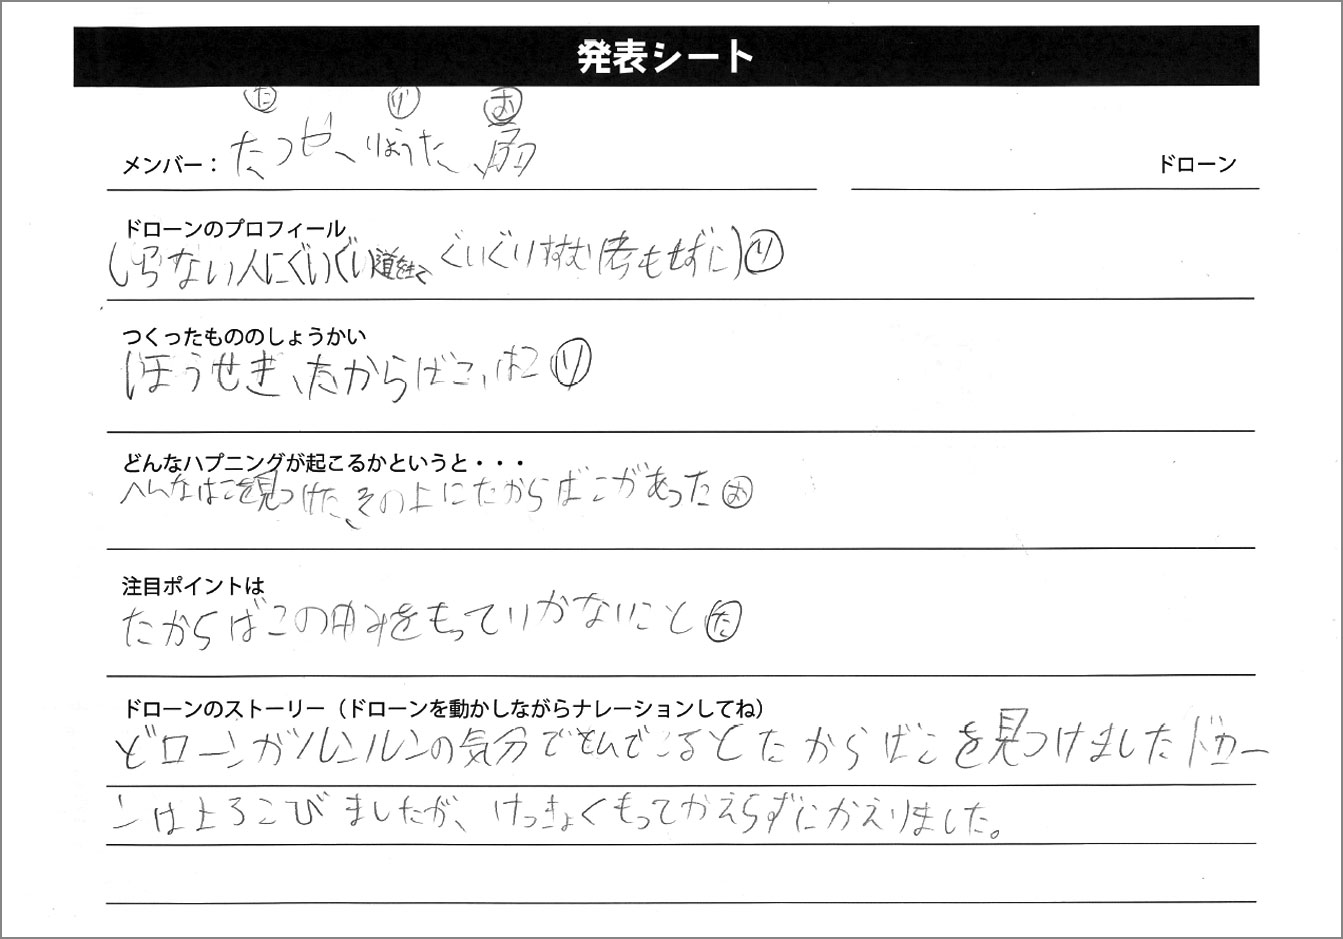 発表シート
た り お
メンバー： たつや、りょうた、 ドローン
ドローンのプロフィール
しらない人にぐいぐい道をきく ぐいぐいすすむ(考もせずに) り
つくったもののしょうかい
ほうせき、たからばこ、はこ り
どんなハプニングが起こるかというと・・・
へんなはこを見つけた、その上にたからばこがあった お
注目ポイントは
たからばこの中みをもっていかないこと た
ドローンのストーリー（ドローンを動かしながらナレーションしてね）
ドローンがルンルンの気分でとんでいるとたからばこを見つけましたドロー
ンはよろこびましたが、けっきょくもってかえらずにかえりました。